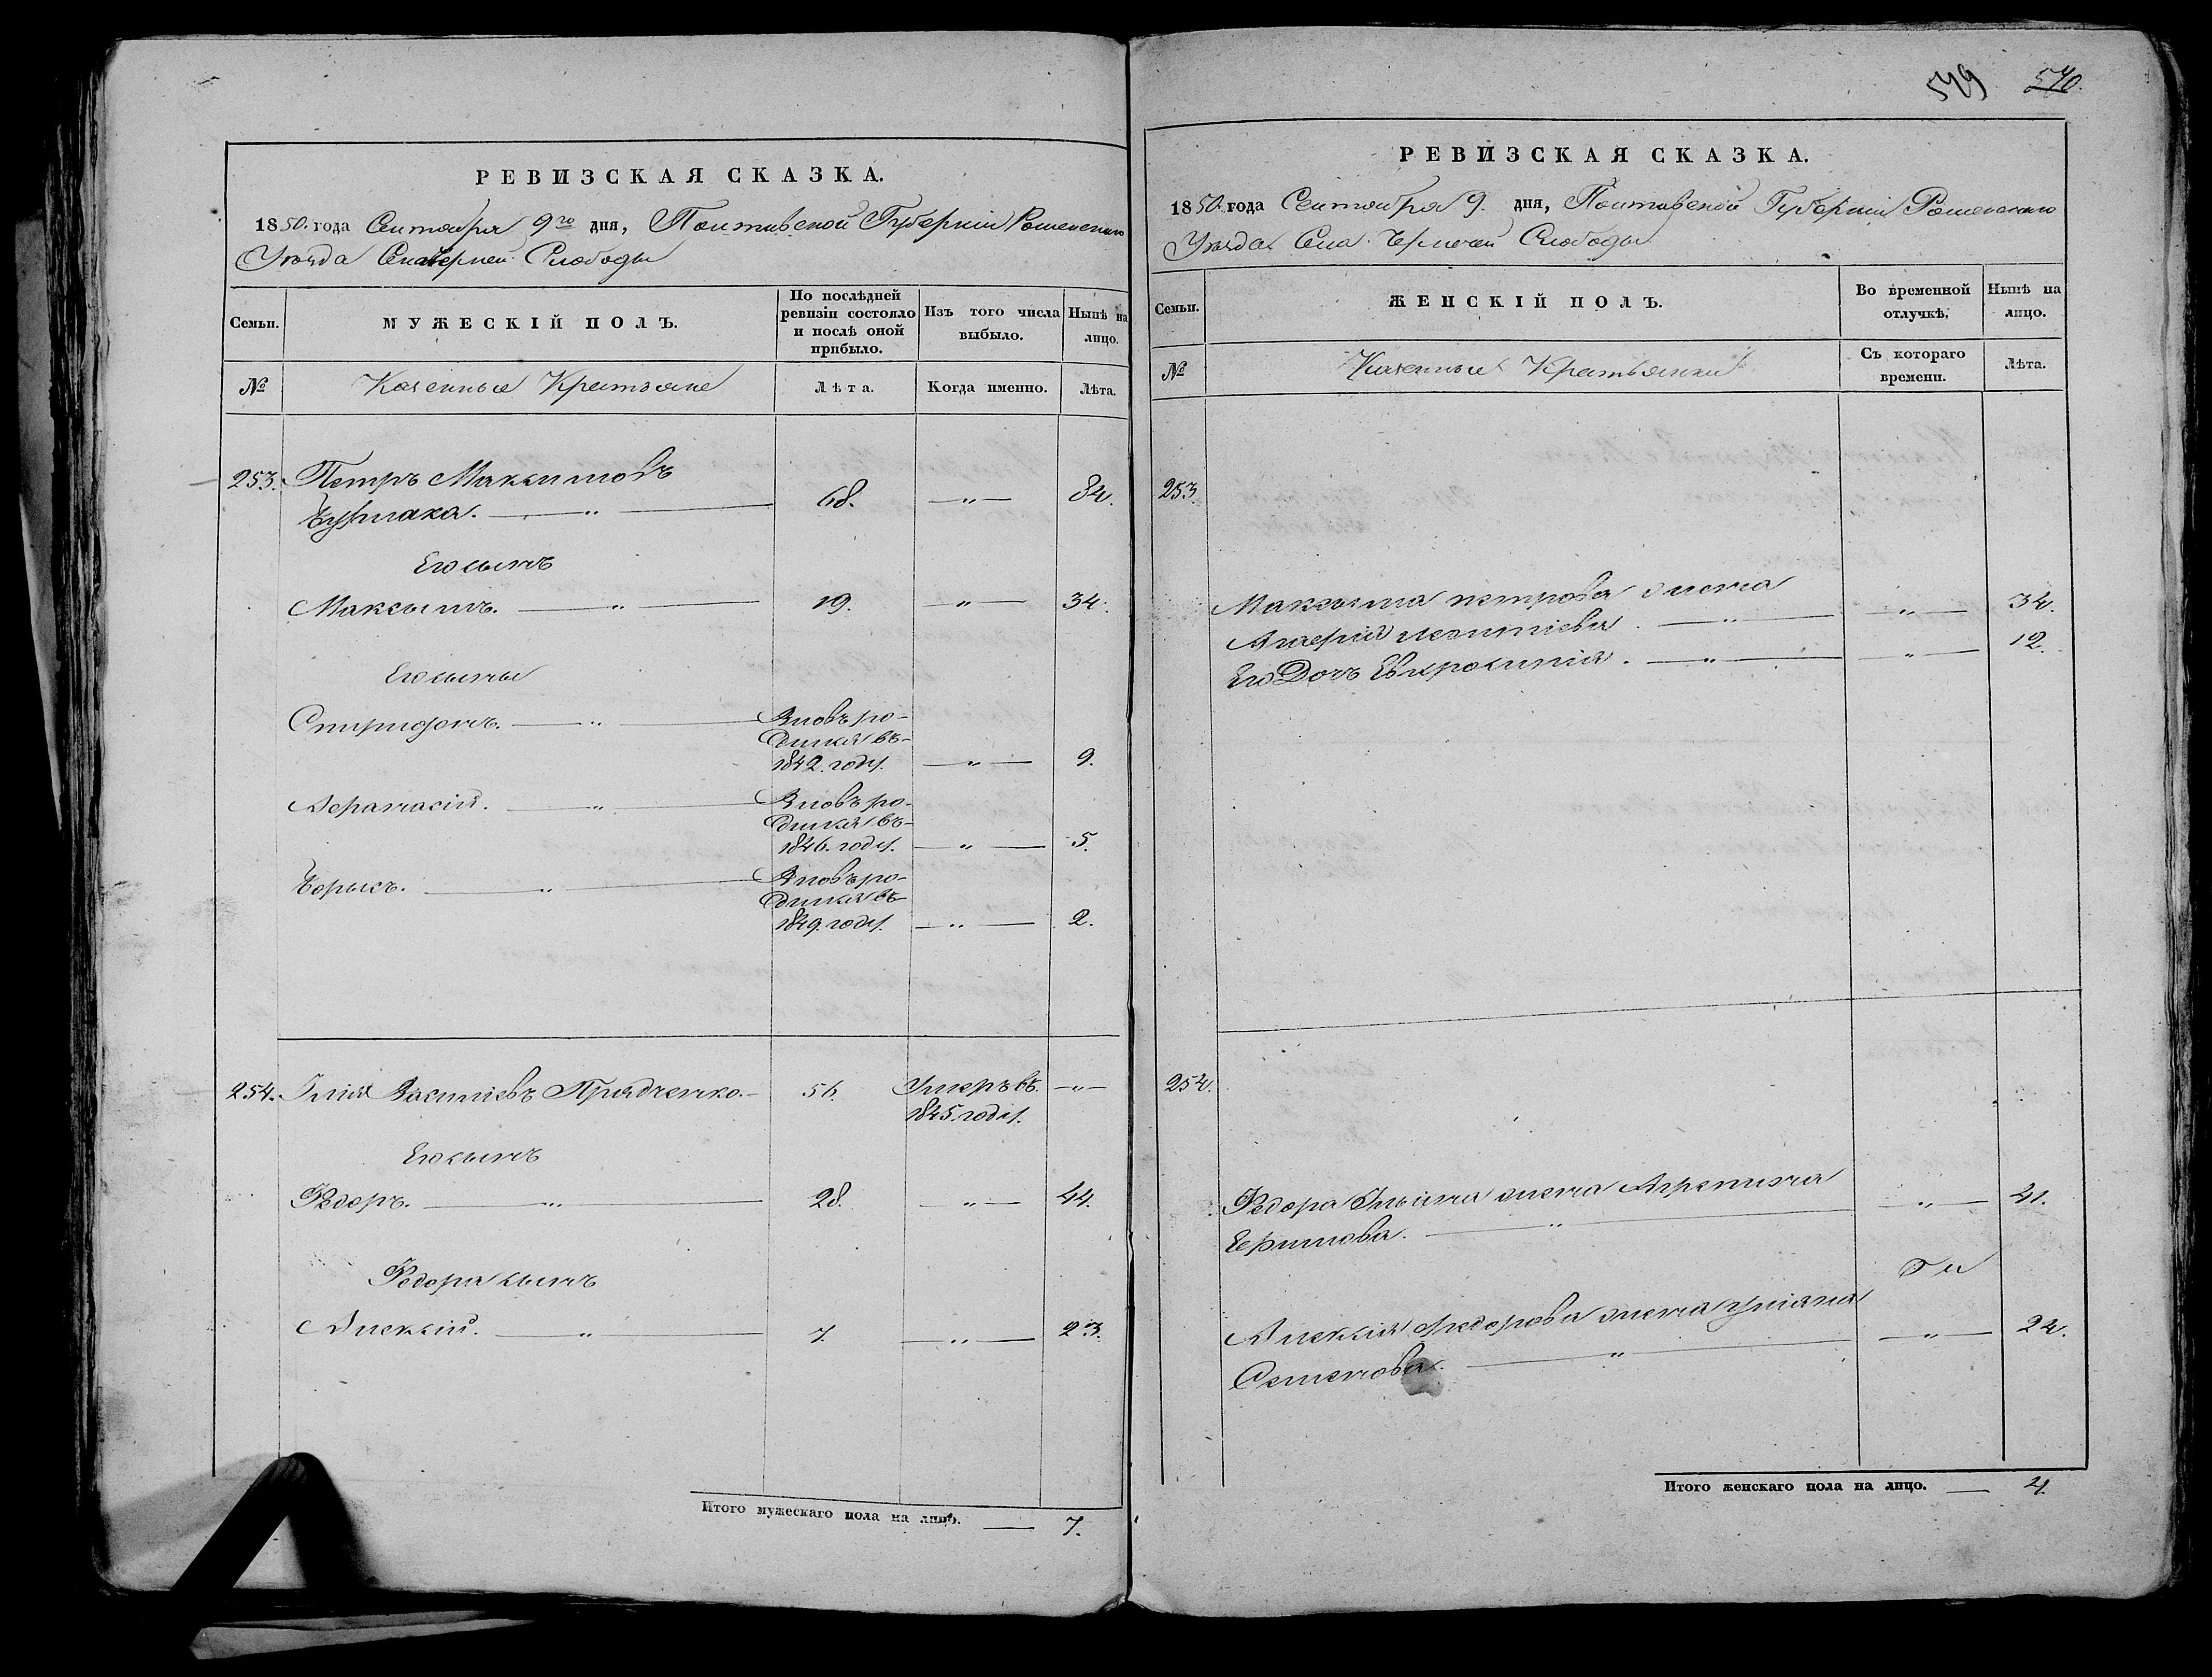 РЕВИЗСКАЯ СКАЗКА.
1850. года Сентября 9го дня, Полтавской Губерніи Роменскаго
Уѣзда Села Черней Слободы
Семьи.
МУЖЕСКІЙ ПОЛЪ.
По послѣдней ревизіи состояло и послѣ оной прибыло.
Изъ того числа выбыло.
Нынѣ на лицо.
№
Казенные Крестьяне
Лѣта.
Когда именно.
Лѣта.
253. Петръ Максимовъ
68. —"— 84.
Его сынъ
Максымъ. —"— 19. —"— 34.
Его сыны
Спиридонъ. —"— Вновь ро-
дился въ-
1842. году. —"— 9.
Афанасій. —"— Вновь ро-
дился въ-
1846. году. —"— 5.
Борысъ. —"— Вновь ро-
дился въ
1849. году. —"— 2.
254. Илія Василіевъ Прядченко.— 56. Умеръ въ. —"—
1845. году.
Его сынъ
Федоръ. —"— 28. —"— 44.
Федора сынъ
Алексій. —"— 7. —"— 23.
Итого мужескаго пола на лицо. — 7.
549 540.
РЕВИЗСКАЯ СКАЗКА.
1850. года Сентября 9. дня, Полтавской Губерніи Роменскаго
Уѣзда Села Черней Слободы
Семьи.
ЖЕНСКІЙ ПОЛЪ.
Во временной отлучкѣ.
Нынѣ на лицо.
№
Казенные Крестьянки
Съ котораго времени.
Лѣта.
253.
Максыма петрова жена
—"— —"— 34.
Его Дочь Евфросинія. —"— —"— 12.
254.
Федора Ильина жена Агрепина
—"— 41.
Ефимова. —"—
Алексія федорова жена уліяна
—"— 22.
Семенова. —"—
Итого женскаго пола на лицо. — 4.